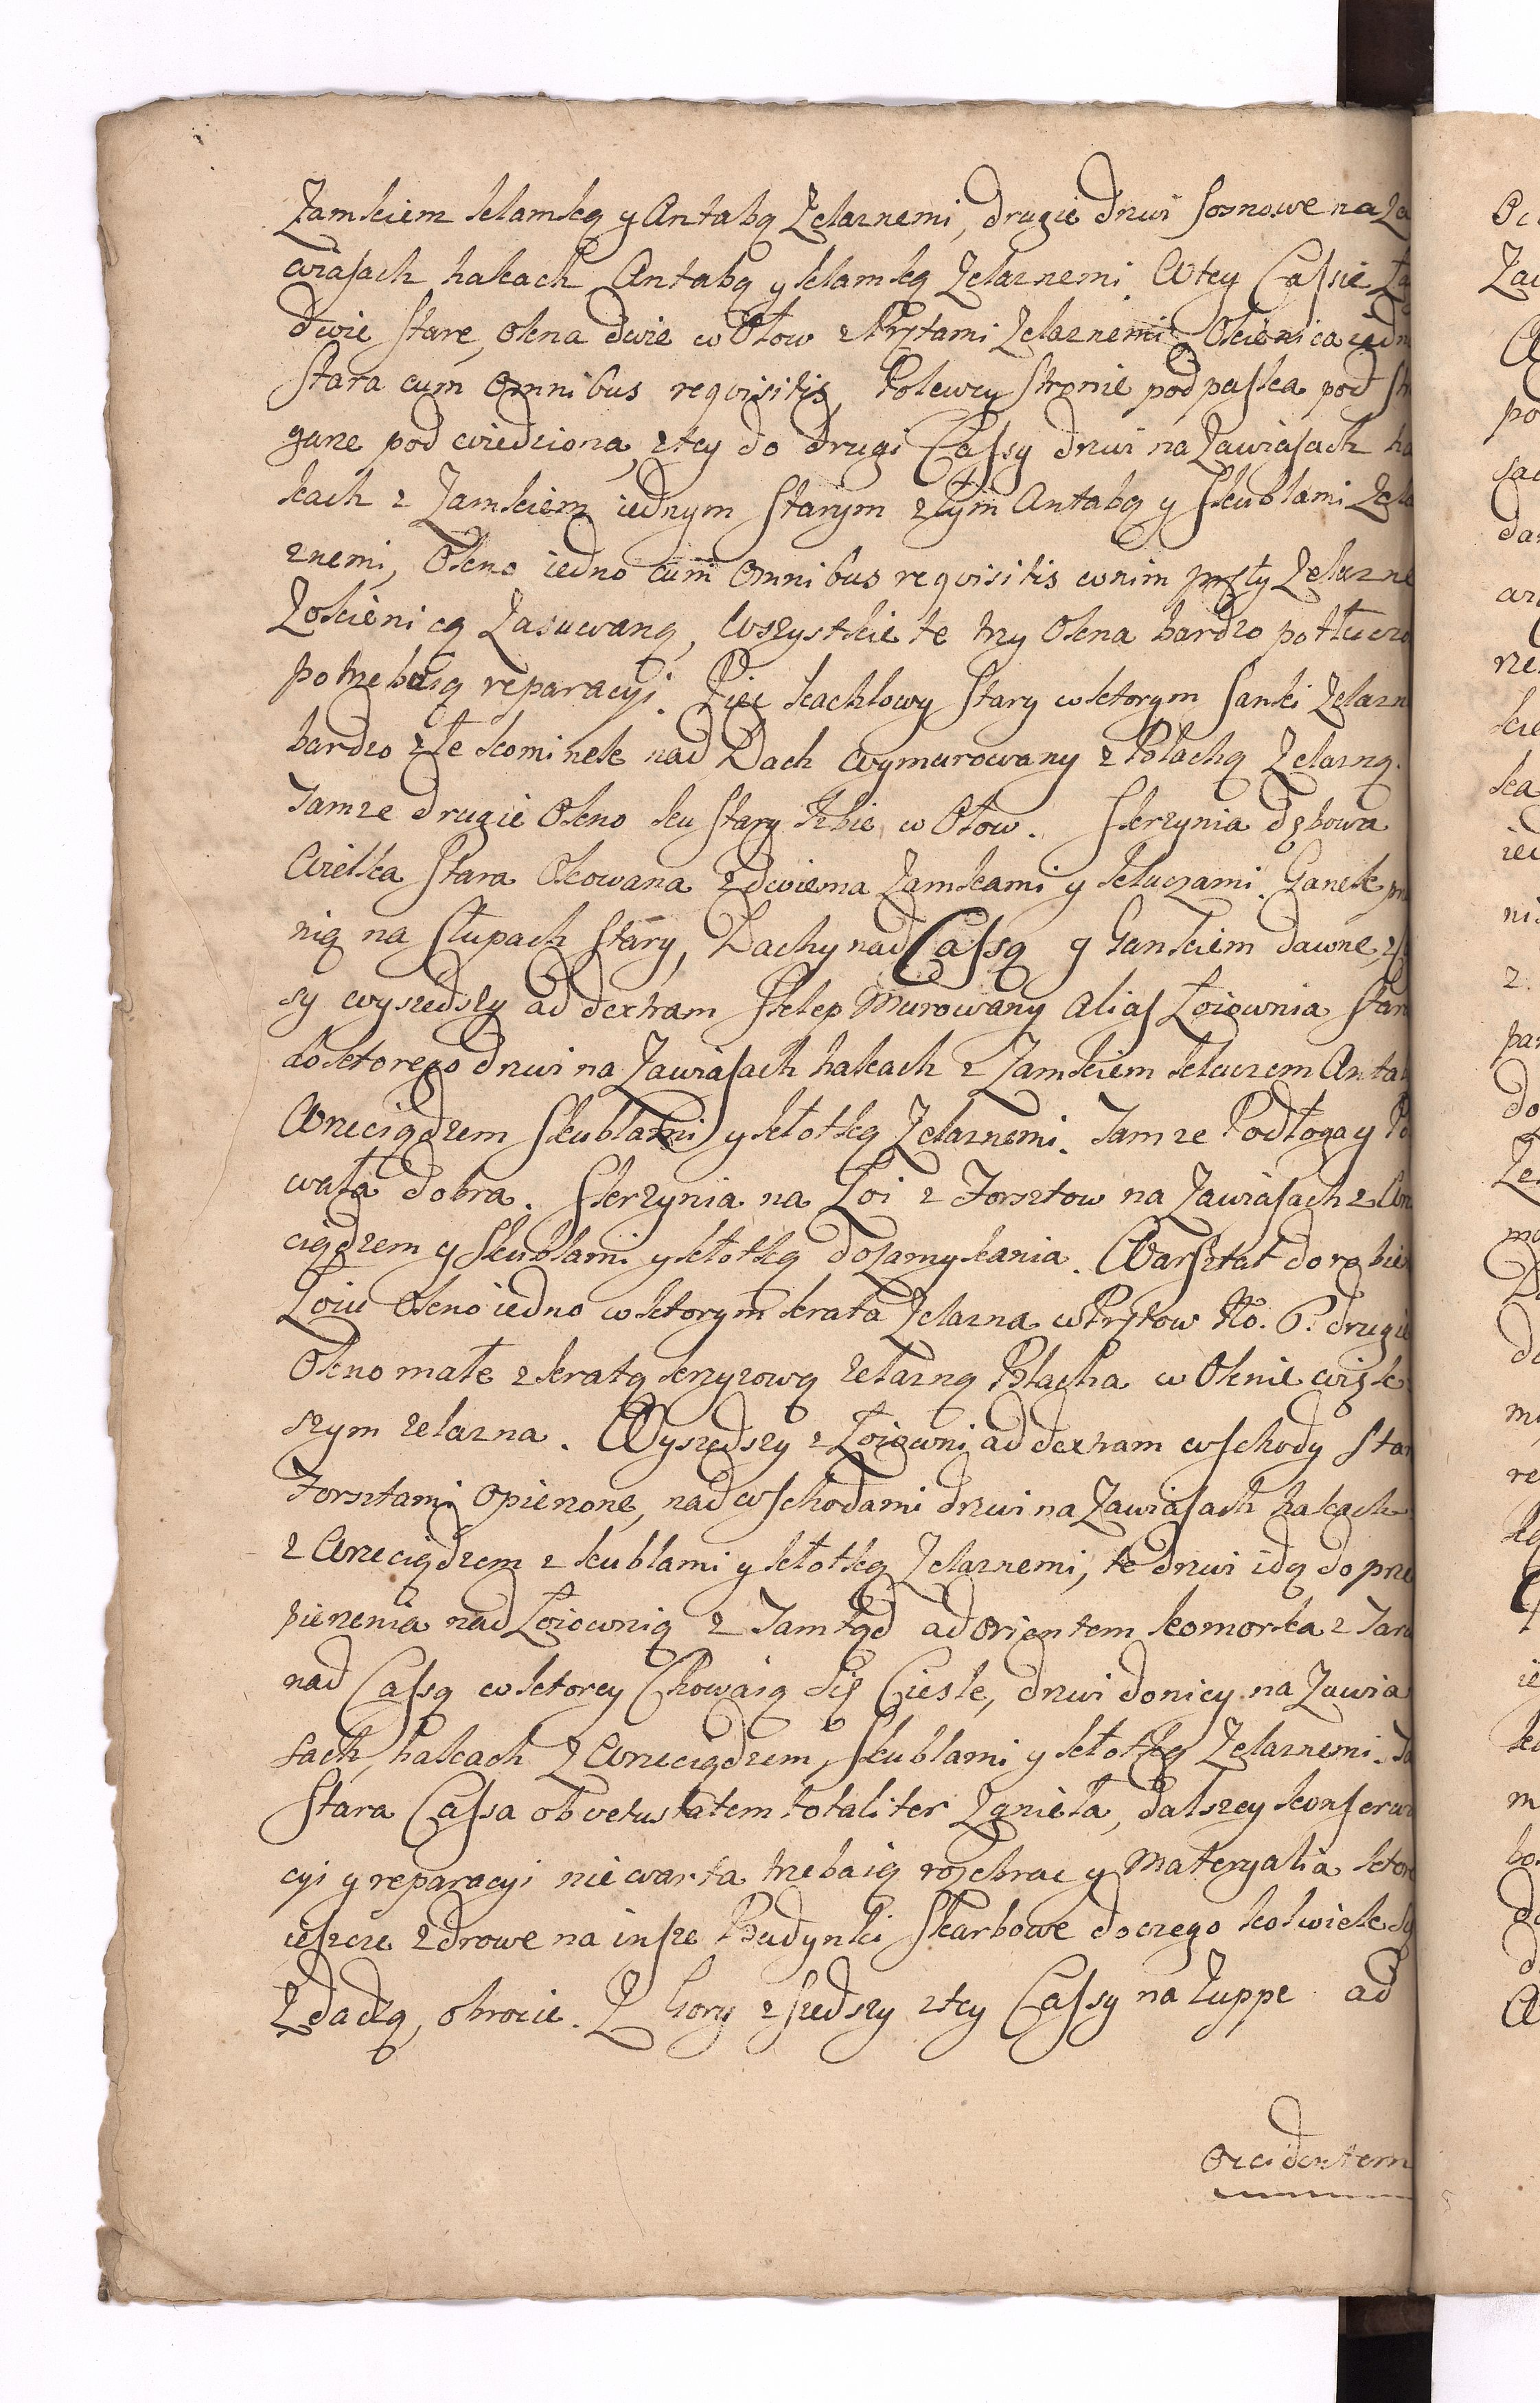 Zamkiem klamką y Antabą Zelaznemi, drugie drzwi sosnowe na Za
wiasach hakach Antabą y klamką Zelaznemi. W tey Cassie
dwie stare, okna dwie w Ołow z Prętami Zelaznemi Okienica iedn
stara cum omnibus requisitis, Po lewey stronie podpaska pod
gane podwiedziona, z tey do drugi Cassy drzwi na Zawiasach ha
kach z Zamkiem iednym starym złym Antabą y Skublami Zela
znemi, Okno iedno cum omnibus requisitis w nim pręty Zelazne
Z okienicą Zasuwaną, Wszystkie te trzy Okna bardzo potłuczo
potrzebuią reparacyi. Piec kachlowy stary w ktorym Sanki Zelazn
bardzo złe kominek nad Dach wymurowany z Blachą Zelazną.
Tamze drugie Okno ku stary Izbie w Ołow. Skrzynia dębowa
Wielka stara Okowana z dwiema Zamkami y kluczami. Ganek
nią na Słupach stary, Dachy nad Cassą y Gankiem dawne,
sy wyszedszy ad dextram Sklep Murowany alias Łoiownia star
do ktorego drzwi na Zawiasach hakach z Zamkiem kluczem Antab
Wrzeciądzem Skublami y kłotką Zelaznemi. Tamze Podłoga y Po
wała dobra. Skrzynia na Łoi z Forsztow na Zawiasach z Wrze
ciądzem y Skublami y kłotką do zamykania. Warsztat do robie
Łoiu Okno iedno w ktorym krata Zelazna w Prętow No. 6. drugie
Okno małe z kratą krzyzową zelazną Blacha w Oknie więk
szym zelazna. Wyszedszy z Łoiowni ad dextram wschody star
Forsztami opierzone, nad wschodami drzwi na Zawiasach hakach
z Wrzeciądzem z kublami y kłotką Zelaznemi, te drzwi idą do prze
pierzenia nad Łoiownią z Tamtąd ad orientem komorka z Tarc
nad Cassą w ktorey Chowaią się Cieśle, drzwi do nicy na Zawia
sach, hakach z Wrzeciądzem, Skublami y kłotką Zelaznemi. Ta
stara Cassa ob vetustatem totaliter Zgnieła, dalszey konserwa
cyi y reparacyi nie warta trzeba ią rozebrac y Materyalia ktore
ieszcze zdrowe na insze Budynki Skarbowe do czego kolwiek się
Zdadzą, obrocic. Z Gory zszedszy z tey Cassy na Zuppe ad
Occidentem